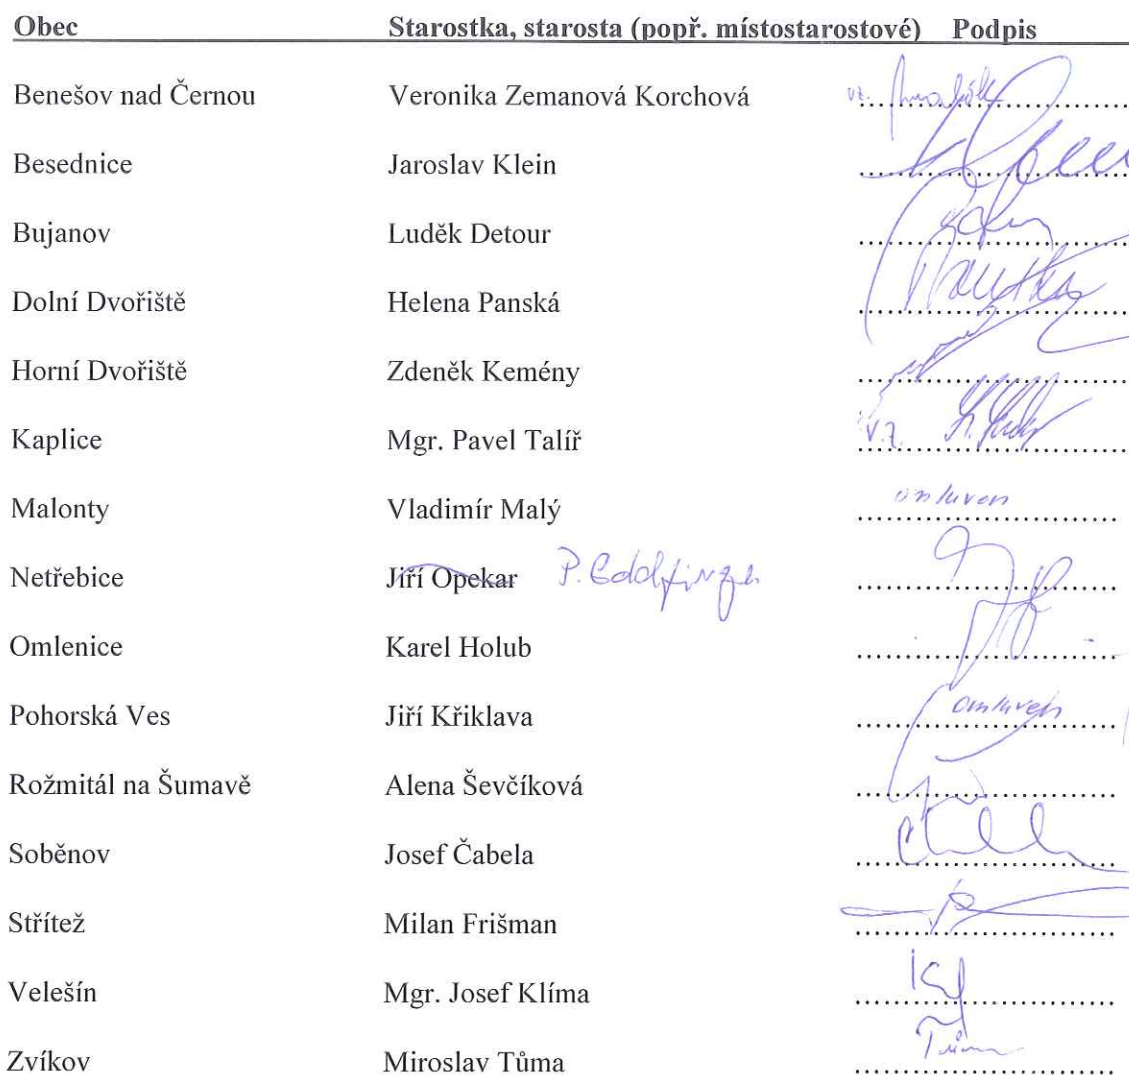 Obec Starostka, starosta (popř. místostarostové) Podpis
Benešov nad Černou Veronika Zemanová Korchová vz.
Besednice Jaroslav Klein
Bujanov Luděk Detour
Dolní Dvořiště Helena Panská
Horní Dvořiště Zdeněk Kemény
Kaplice Mgr. Pavel Talíř v.z.
Malonty Vladimír Malý omluven
Netřebice Jiří Opekar P. Goldfinger
Omlenice Karel Holub
Pohorská Ves Jiří Křiklava omluven
Rožmitál na Šumavě Alena Ševčíková
Soběnov Josef Čabela
Střítež Milan Frišman
Velešín Mgr. Josef Klíma
Zvíkov Miroslav Tůma Tůma